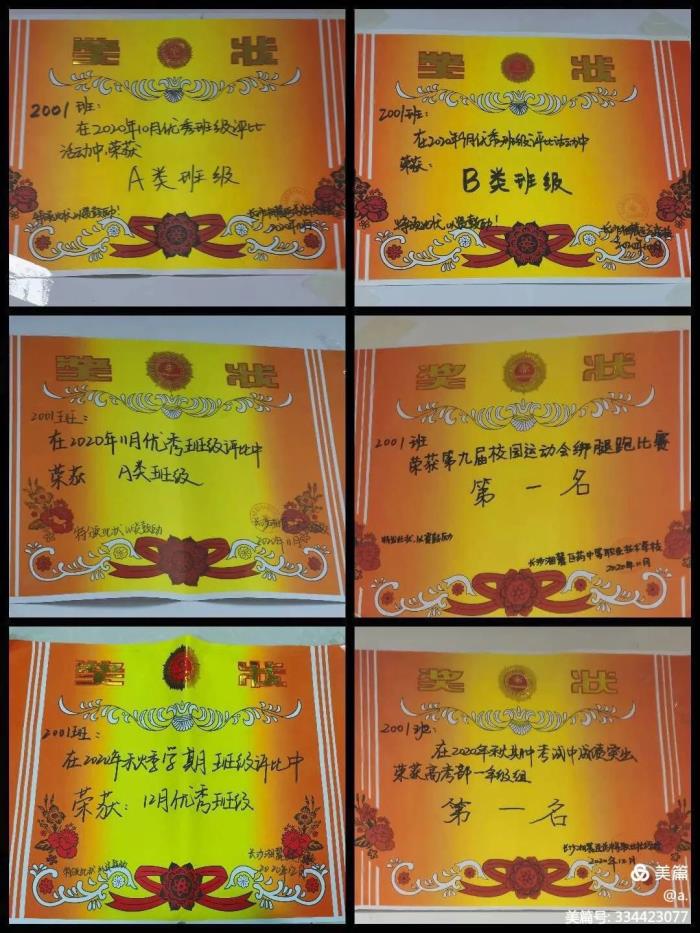 奖 状
2001班:
在2020年10月优秀班级评比
活动中,荣获
A类班级
特颁此状,以资鼓励!
奖 状
2001班:
在2020年9月优秀班级评比活动中
荣获:
B类班级
特颁此状,以资鼓励!
奖 状
2001班:
在2020年11月优秀班级评比中
荣获 A类班级
特颁此状 以资鼓励
2020年11月
奖 状
2001班
荣获第九届校园运动会绑腿跑比赛
第一名
特发此状,以资鼓励
长沙湘麓医药中等职业技术学校
2020年11月
奖 状
2001班:
在2020年秋季学期班级评比中
荣获:12月优秀班级
特颁此状 以资鼓励
2020年12月
奖 状
2001班:
在2020年秋期中考试中成绩突出
荣获高考部一年级组
第一名
2020年12月
美篇
@a.
美篇号: 334423077